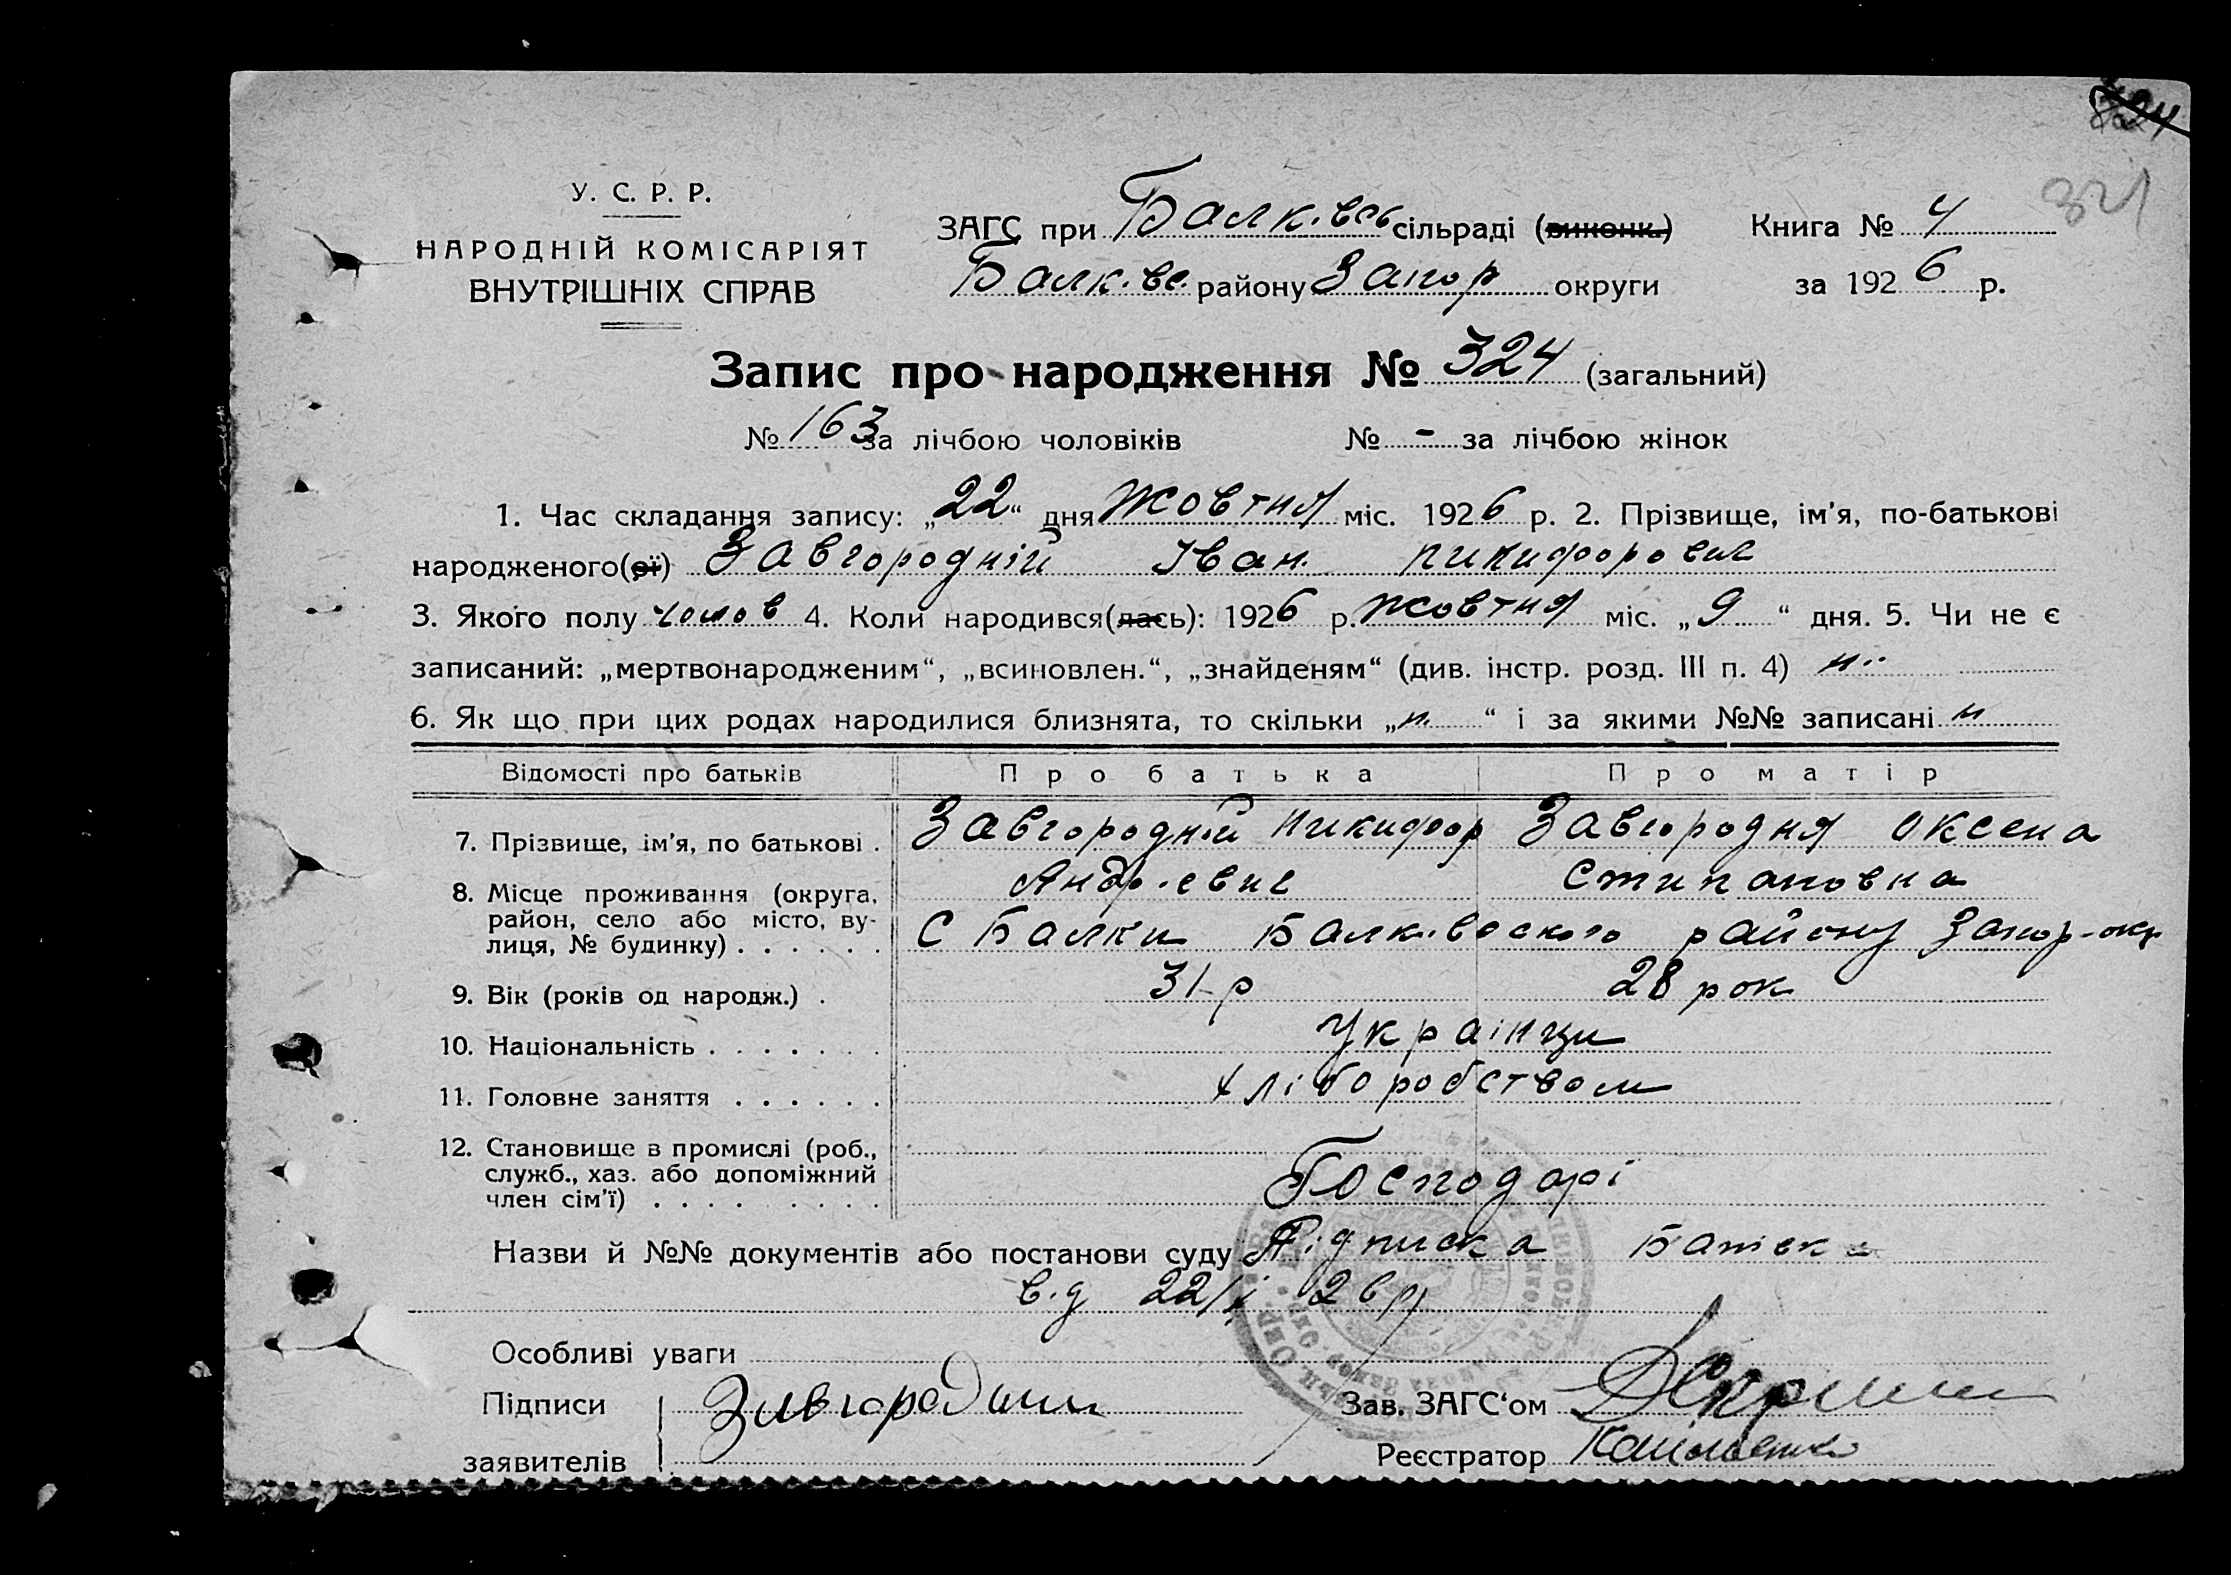 324
321
У. С. Р. Р.
НАРОДНІЙ КОМІСАРІЯТ
ВНУТРІШНІХ СПРАВ
ЗАГС при Балківсь сільраді (виконк.) Книга № 4
Балк.вс. району Запор округи за 1926 р.
Запис про народження № 324 (загальний)
№ 163 за лічбою чоловіків № - за лічбою жінок
1. Час складання запису: „22“ дня жовтня міс. 1926 р. 2. Прізвище, ім'я, по-батькові
народженого(ої) Завгородній Іван Никифорович
3. Якого полу чолов 4. Коли народився(лась): 1926 р. жовтня міс. „9“ дня. 5. Чи не є
записаний: „мертвонародженим“, „всиновлен.“, „знайденям“ (див. інстр. розд. III п. 4) ні
6. Як що при цих родах народилися близнята, то скільки „н“ і за якими №№ записані н
Відомості про батьків Про батька Про матір
7. Прізвище, ім'я, по батькові . Завгородній Никифор Завгородня Оксена
Андр.евич Стипановна
8. Місце проживання (округа,
район, село або місто, ву-
лиця, № будинку) . . . . . . С Балки Балк.вского району Запор-окр
9. Вік (років од народж.) . 31 р 28 рок
10. Національність . . . . . . . Українци
11. Головне заняття . . . . . . хліборобством
12. Становище в промислі (роб.,
служб., хаз. або допоміжний
член сім'ї) . . . . . . . . . Господарі
Назви й №№ документів або постанови суду Підписка Батька
в.д 22/X 26 р
Особливі уваги
Підписи Завгородний Зав. ЗАГС'ом
заявителів Реєстратор